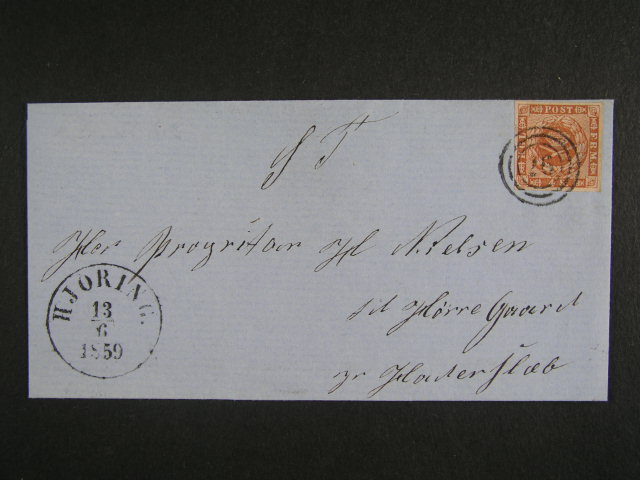 S T
POST
FRM.
4
16
Herr Propritair Hl Nielsen
til Hørre Gaard
pr Hadersläb
HJØRING.
13
6
1859